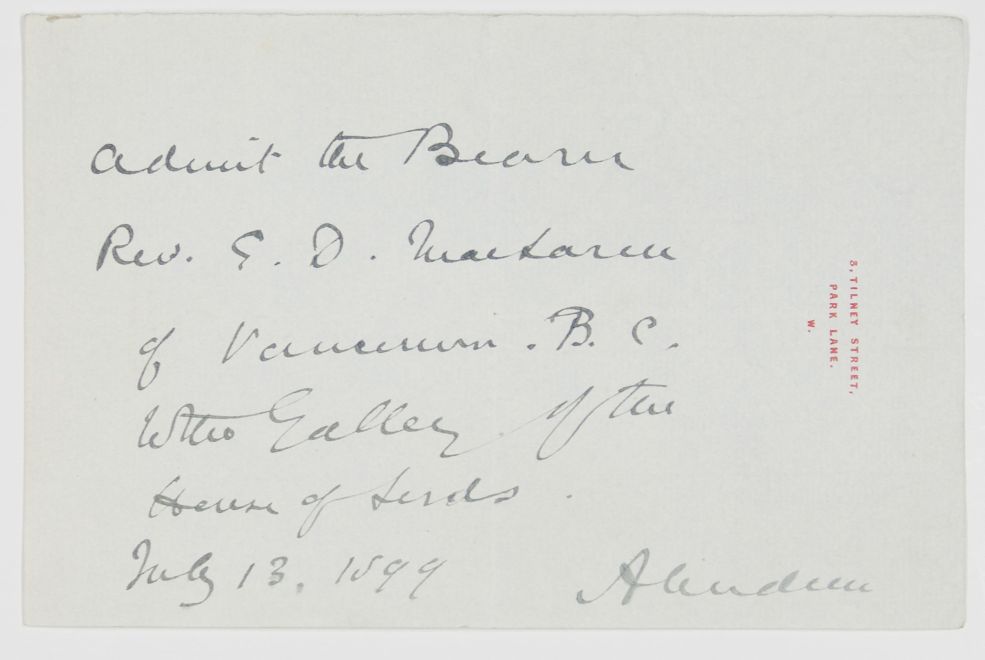 Admit the Bearer
Rev. E. D. MacLaren
of Vancouver. B. C.
to the Gallery of the
House of Lords.
July 13. 1899
Aberdeen
3, TILNEY STREET,
PARK LANE.
W.